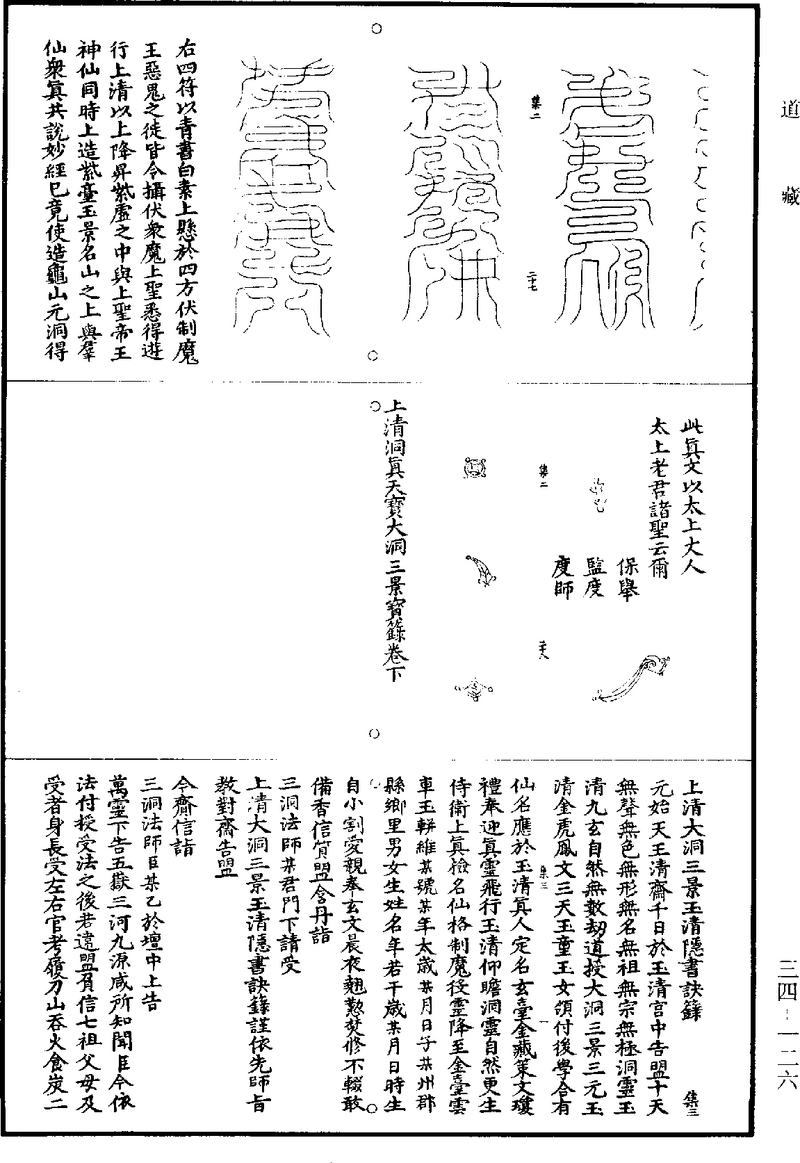 道藏
集二
二七
右四符以青書白素上懸於四方伏制魔
王惡鬼之徒皆令攝伏衆魔上聖悉得遊
行上清以上降昇紫虛之中與上聖帝王
神仙同時上造紫臺玉景名山之上與羣
仙衆眞共說妙經已竟使造龜山元洞得
此眞文以太上大人
太上老君諸聖云爾
保舉
監度
度師
集二
二八
上清洞眞天寶大洞三景寶籙卷下
上清大洞三景玉清隱書訣籙
集三
元始天王清齋千日於玉清宮中告盟十天
無聲無色無形無名無祖無宗無極洞靈玉
清九玄自然無數劫道授大洞三景三元玉
清金虎鳳文三天玉童玉女領付後學合有
仙名應於玉清眞人定名玄臺金藏策文瓊
集三
一
禮奉迎眞靈飛行玉清仰瞻洞靈自然更生
侍衛上眞檢名仙格制魔役靈降至金臺雲
車玉軿維某號某年太歲某月日子某州郡
縣鄉里男女生姓名年若干歲某月日時生
自小割愛親奉玄文晨夜翹懃焚修不輟敢
備香信質盟含丹詣
三洞法師某君門下請受
上清大洞三景玉清隱書訣籙謹依先師旨
教對齋告盟
今齋信詣
三洞法師臣某乙於壇中上告
萬靈下告五嶽三河九源咸所知聞臣今依
法付授受法之後若違盟負信七祖父母及
受者身長受左右官考履刀山吞火食炭二
三四－一二六